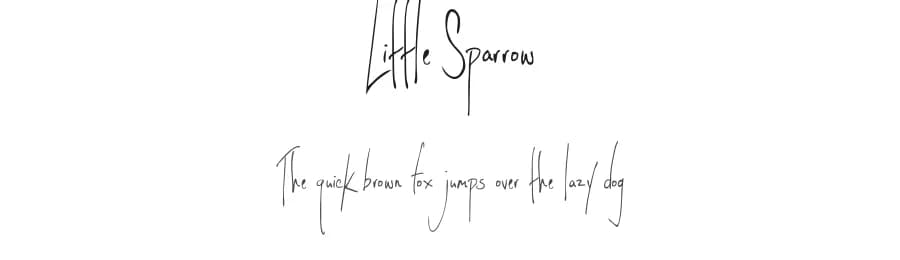 Little Sparrow
The quick brown fox jumps over the lazy dog